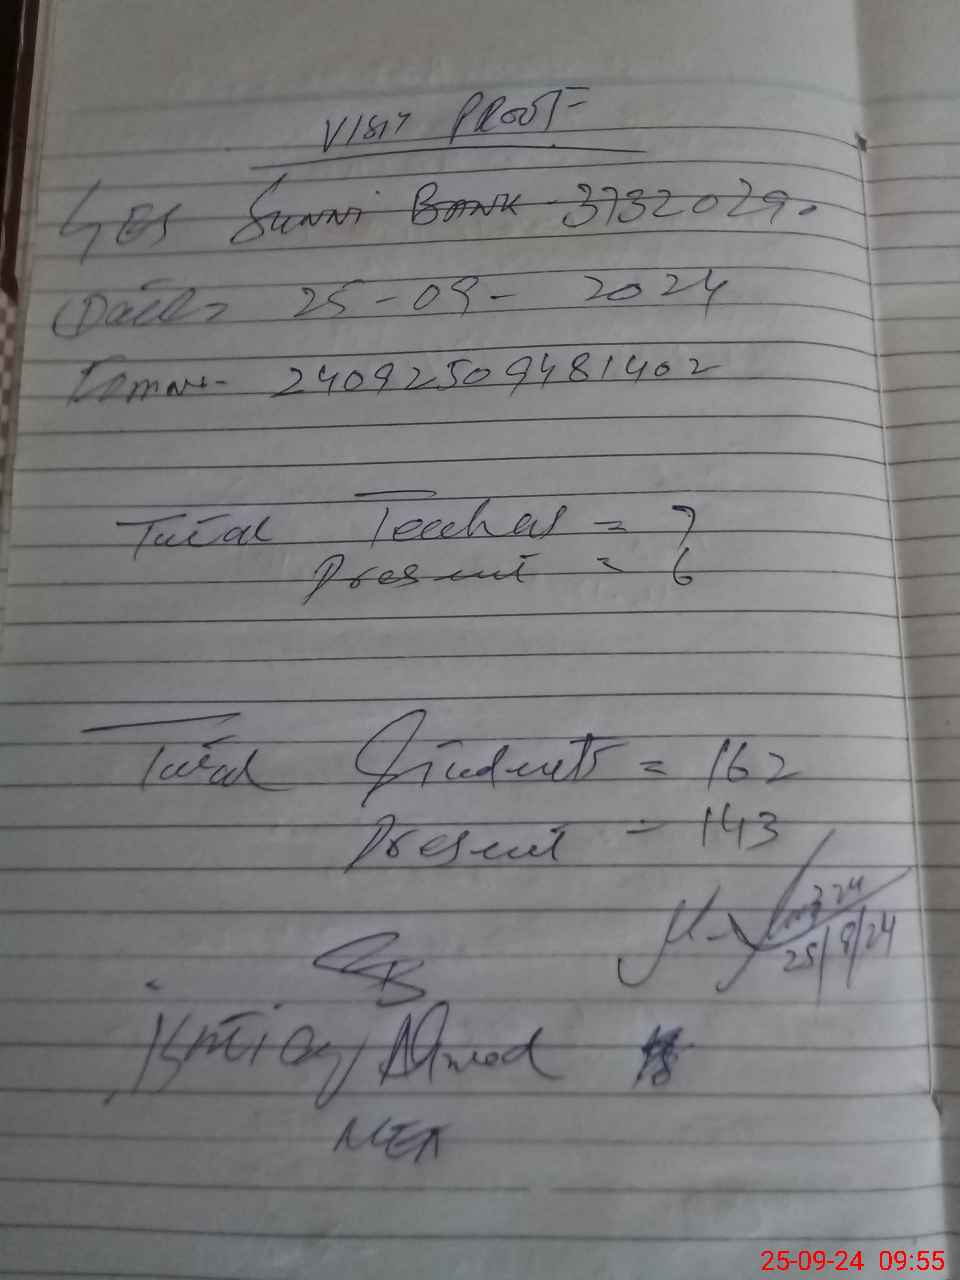 VISIT PROOF
GES Sunni BANK 3732029.
Date 25-09-2024
24092509481402
Total Teachers = 7
Present = 6
Total Students = 162
Present = 143
25/9/24
Ishtiaq Ahmad
MEA
25-09-24 09:55